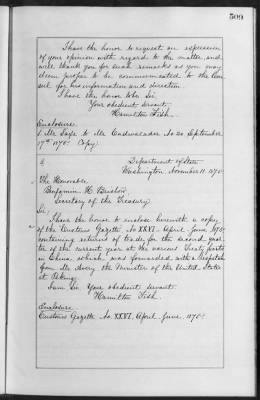 509
I have the honor to request an expression
of your opinion with regard to the matter, and
will thank you for such remarks as you may
deem proper to be communicated to the Con-
sul for his information and direction.
I have the honor to be Sir
Your obedient servant
Hamilton Fish.
Enclosure.
Mr. to Mr. Cadwalader No 20 September
17th 1875. Copy.
Department of State
Washington November 11. 1875.
The Honorable
Benjamin H. Bristow,
Secretary of the Treasury
Sir
I have the honor to enclose herewith a copy
of the Customs Gazette No. XXVI. April June, 1875
containing returns of trade for the second quar-
ter of the current year at the various Treaty ports
in China, which was forwarded with a despatch
from Mr Avery the Minister of the United States
at Peking.
I am Sir Your obedient servant
Hamilton Fish.
Enclosure
Customs Gazette No. XXVI. April June, 1875.